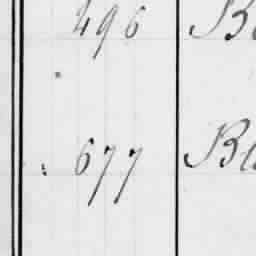 496 B
677 Ba